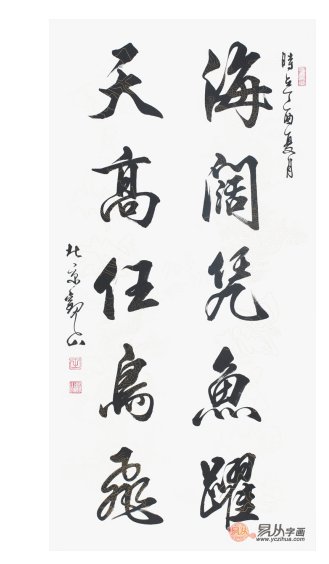 時在丁酉夏月
海闊凭魚躍
天髙任鳥飛
北京
易从字画
www.yczihua.com